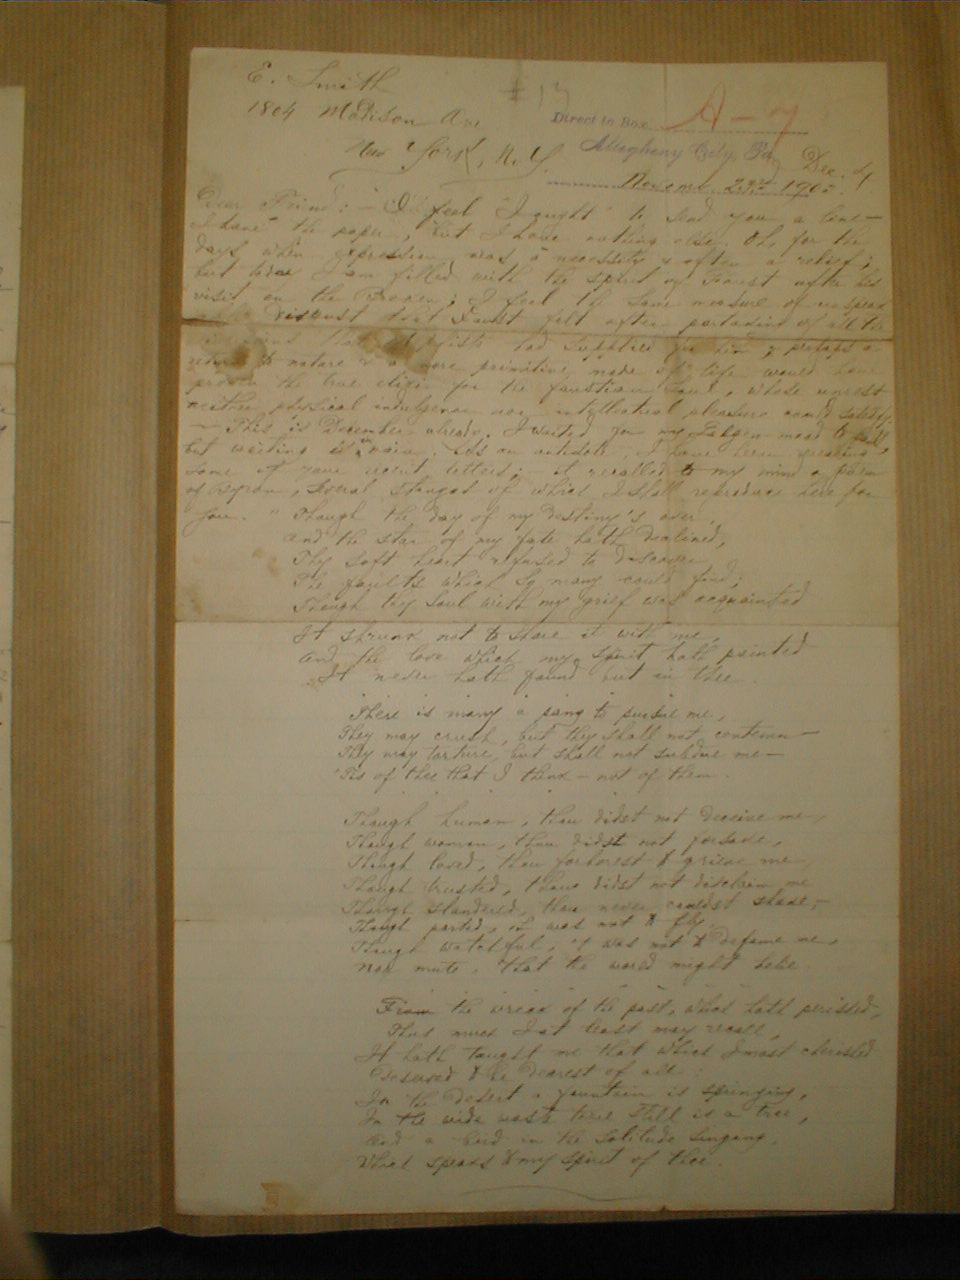 E. Smith
# 13
1804 Madison Ave
Direct to Box A-7
New York, N.Y.
Allegheny City, Pa
Dec. 4
1900
Dear Friend: — I feel "I ought" to send you a line —
I have the paper, but I have nothing else. Oh, for the
days when expression was a necessity & often a relief;
but I am filled with the spirit of Faust after his
visit on the Brocken; I feel to some measure of unspeak
disgust that Faust felt after partaking of all the
had supplied for him & perhaps a
return to nature & a more primitive mode of life would have
proven the true elixir for the Faustian soul, whose unrest
neither physical indulgence nor intellectual pleasure could satisfy.
— This is December already. I waited for my mood to
but waiting is in vain. As an antidote, I have been
some of your recent letters; — it recalled to my mind a poem
of Byron, several stanzas of which I shall reproduce here for
you. "Though the day of my destiny's over,
and the star of my fate hath declined,
Thy soft heart refused to discover
The faults which so many could find;
Though thy soul with my grief was acquainted
It shrunk not to share it with me,
and the love which my spirit hath painted
It never hath found but in thee.
There is many a pang to pursue me,
They may crush, but they shall not contemn —
They may torture, but shall not subdue me —
'Tis of thee that I think — not of them.
Though human, thou didst not deceive me,
Though woman, thou didst not forsake,
Though loved, thou forborest to grieve me,
Though trusted, thou didst not disclaim me
Though slandered, thou never couldst shake, —
Though parted, it was not to fly,
Though watchful, 't was not to defame me,
Nor mute, that the world might belie
From the wreck of the past, which hath perished,
Thus much I at least may recall,
It hath taught me that which I most cherished
Deserved to be dearest of all:
In the desert a fountain is springing,
In the wide waste there still is a tree,
and a bird in the solitude singing,
Which speaks to my spirit of thee.